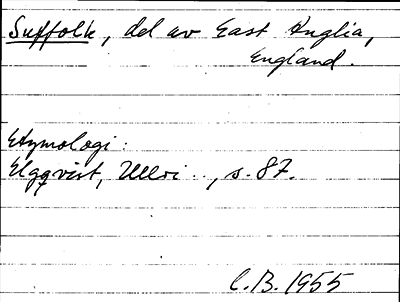 Suffolk, del av East Anglia,
England.
Etymologi:
Elgqvist, Ullvi.., s. 87.
C.B. 1955